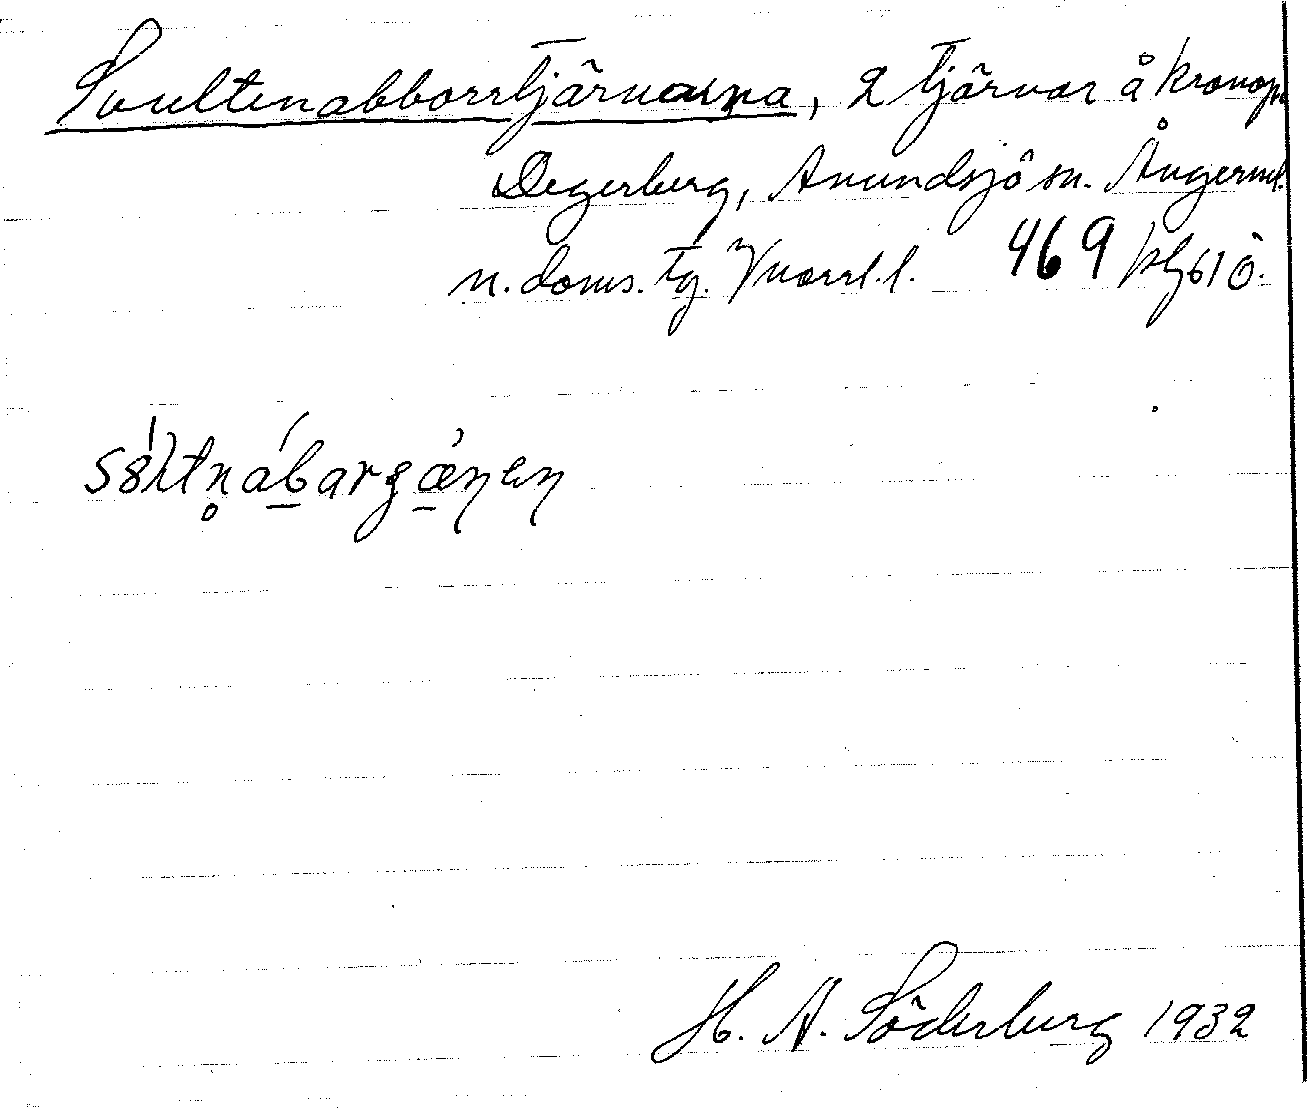 Svultenabborrtjärnarna, 2 tjärnar å kronop.
Degerberg, Anundsjö sn. Ångerml.
n. doms. tg. Vnorrl. l. 469 kbl 61 Ö.
sɵ́ltn̥ábargǽŋeŋ
H. A. Söderberg 1932